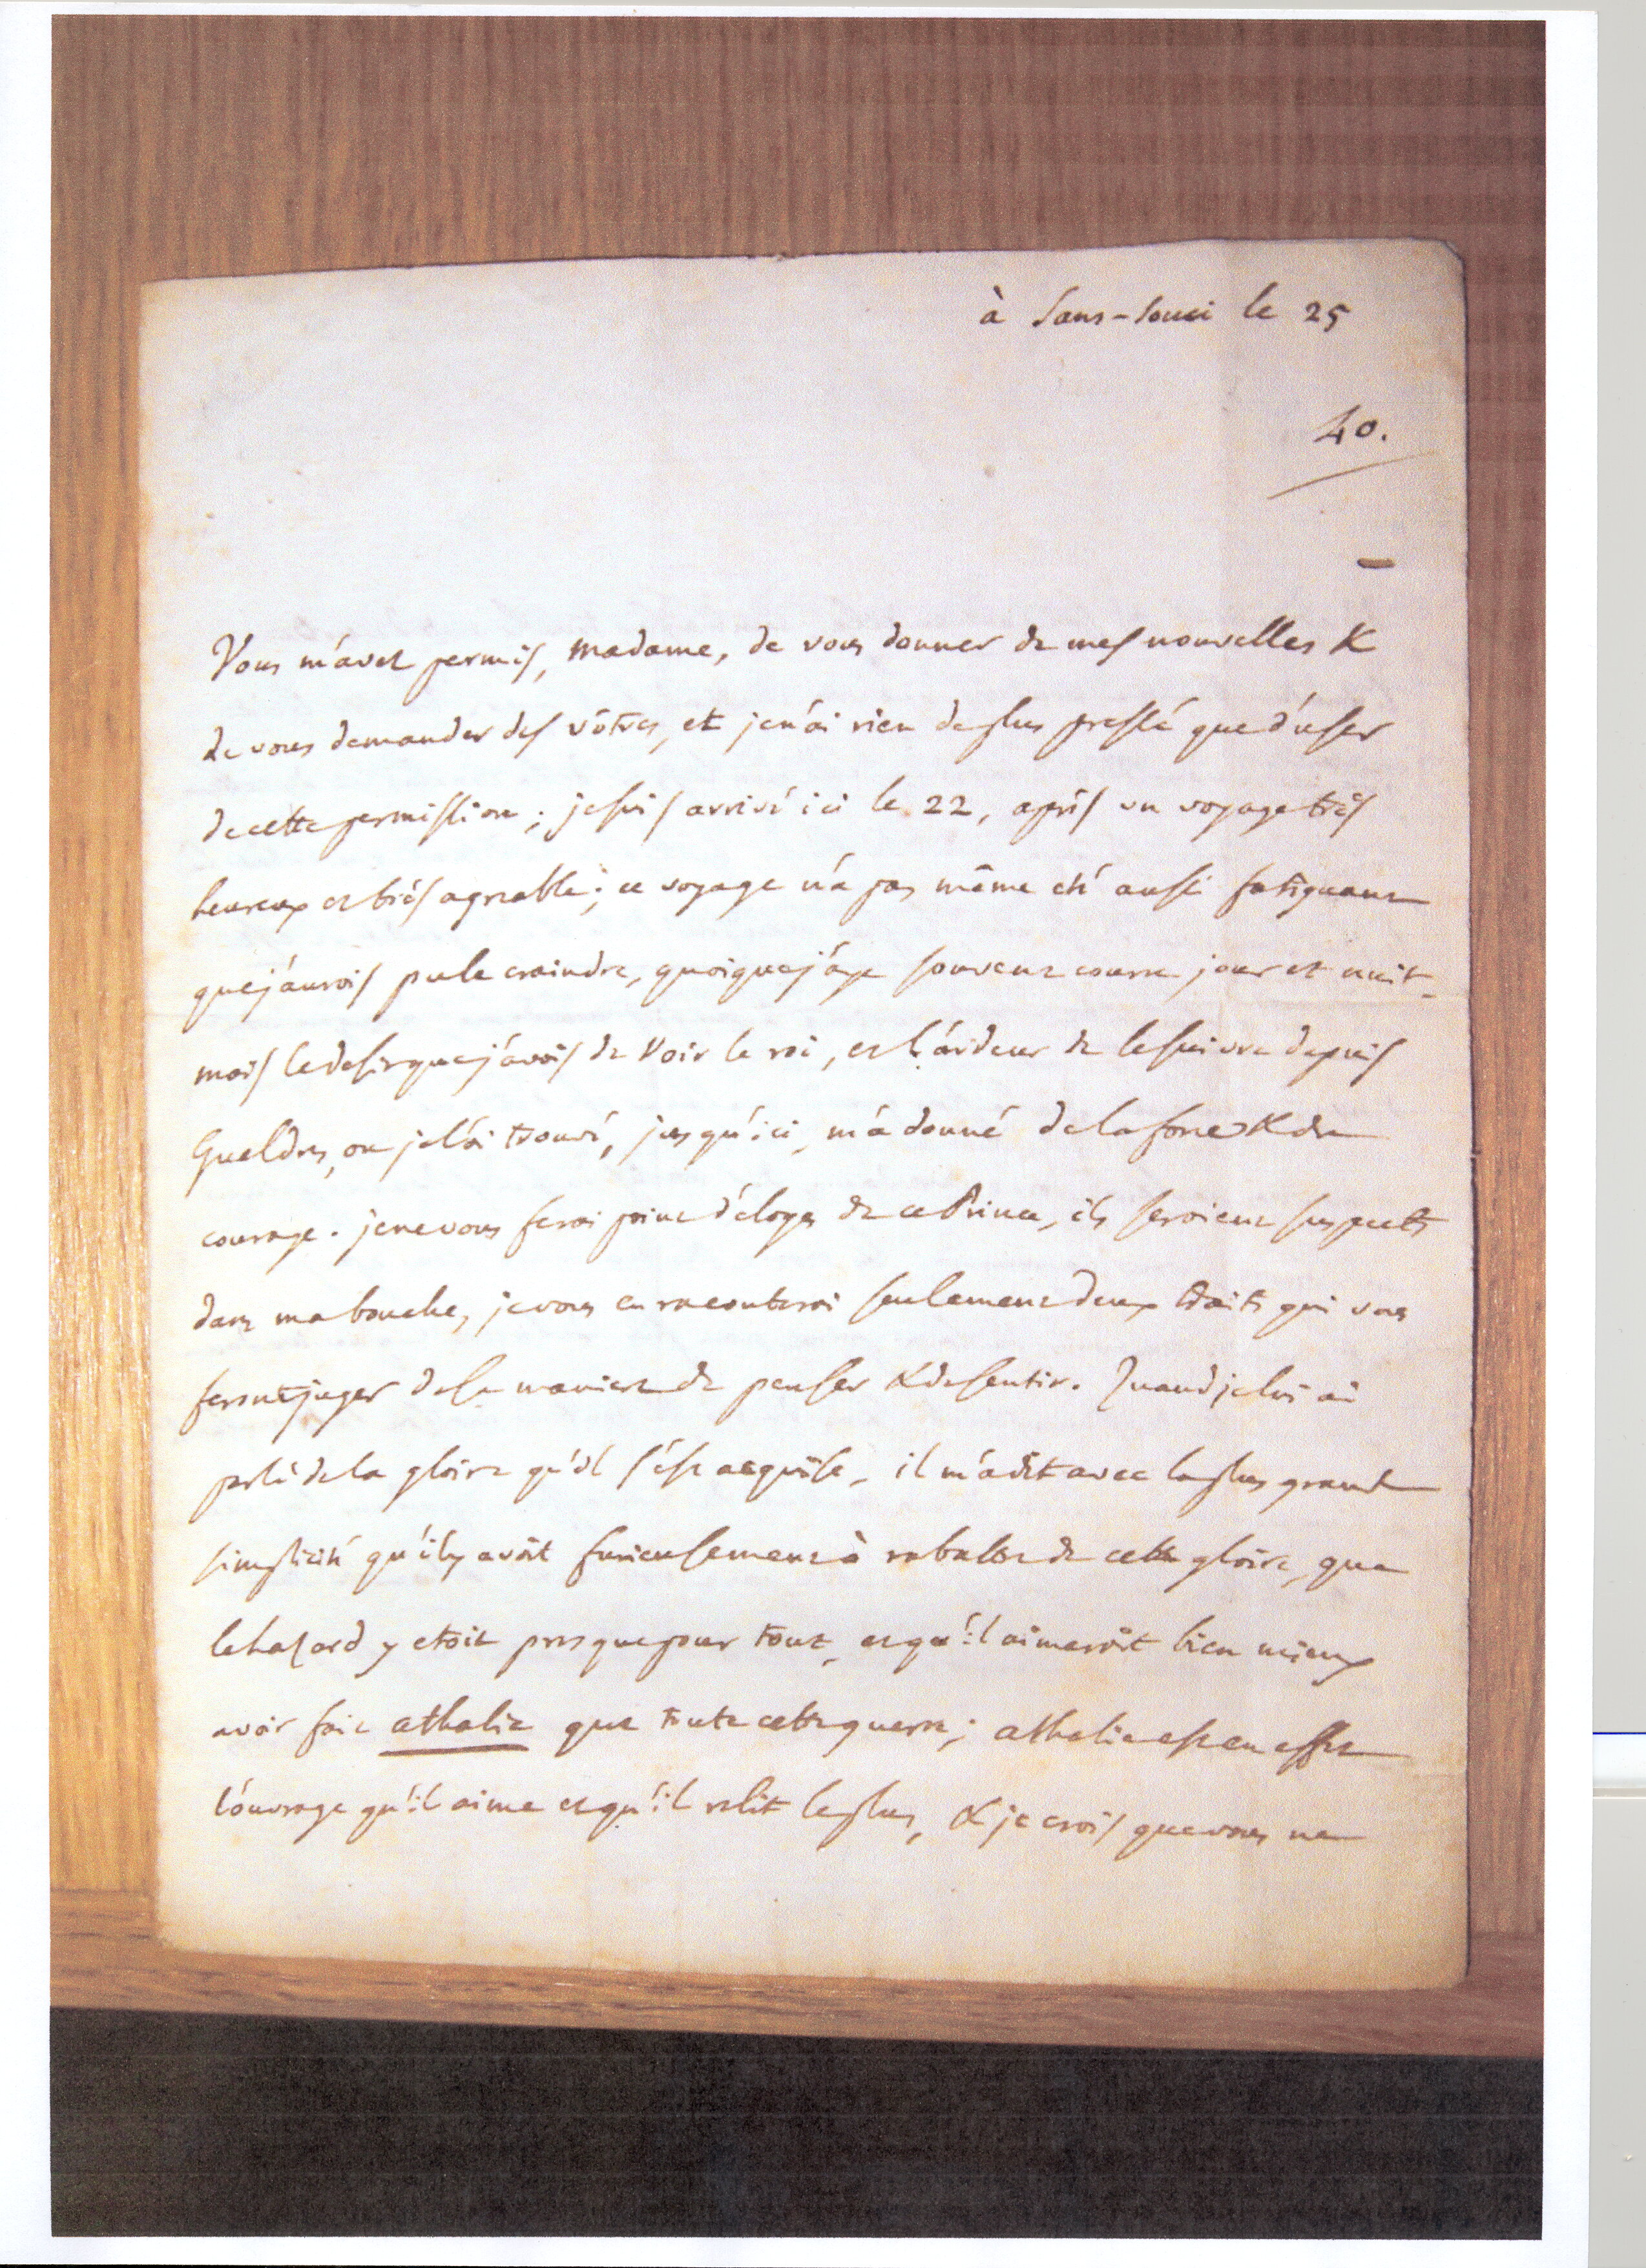 à Sans-Souci le 25
40.
Vous m'avez permis, madame, de vous donner de mes nouvelles &
de vous demander des vôtres, et je n'ai rien de plus pressé que d'user
de cette permission ; je suis arrivé ici le 22, après un voyage très
heureux et très agreable ; ce voyage n'a pas même eté aussi fatiguant
que j'aurois pu le craindre, quoique j'aye souvent couru jour et nuit.
mais le desir que j'avois de voir le roi, et l'ardeur de le suivre depuis
Gueldres, où je l'ai trouvé, jusqu'ici, m'a donné de la force & du
courage. je ne vous ferai point d'éloges de ce Prince, ils seroient suspects
dans ma bouche, je vous en raconterai seulement deux traits qui vous
feront juger de sa maniere de penser & de sentir. Quand je lui ai
parlé de la gloire qu'il s'est acquise, il m'a dit avec la plus grande
simplicité qu'il y avoit furieusement à rabattre de cette gloire, que
le hazard y etoit presque pour tout, et qu'il aimeroit bien mieux
avoir fait athalie que toute cette guerre ; athalie est en effet
l'ouvrage qu'il aime et qu'il relit le plus, & je crois que vous ne